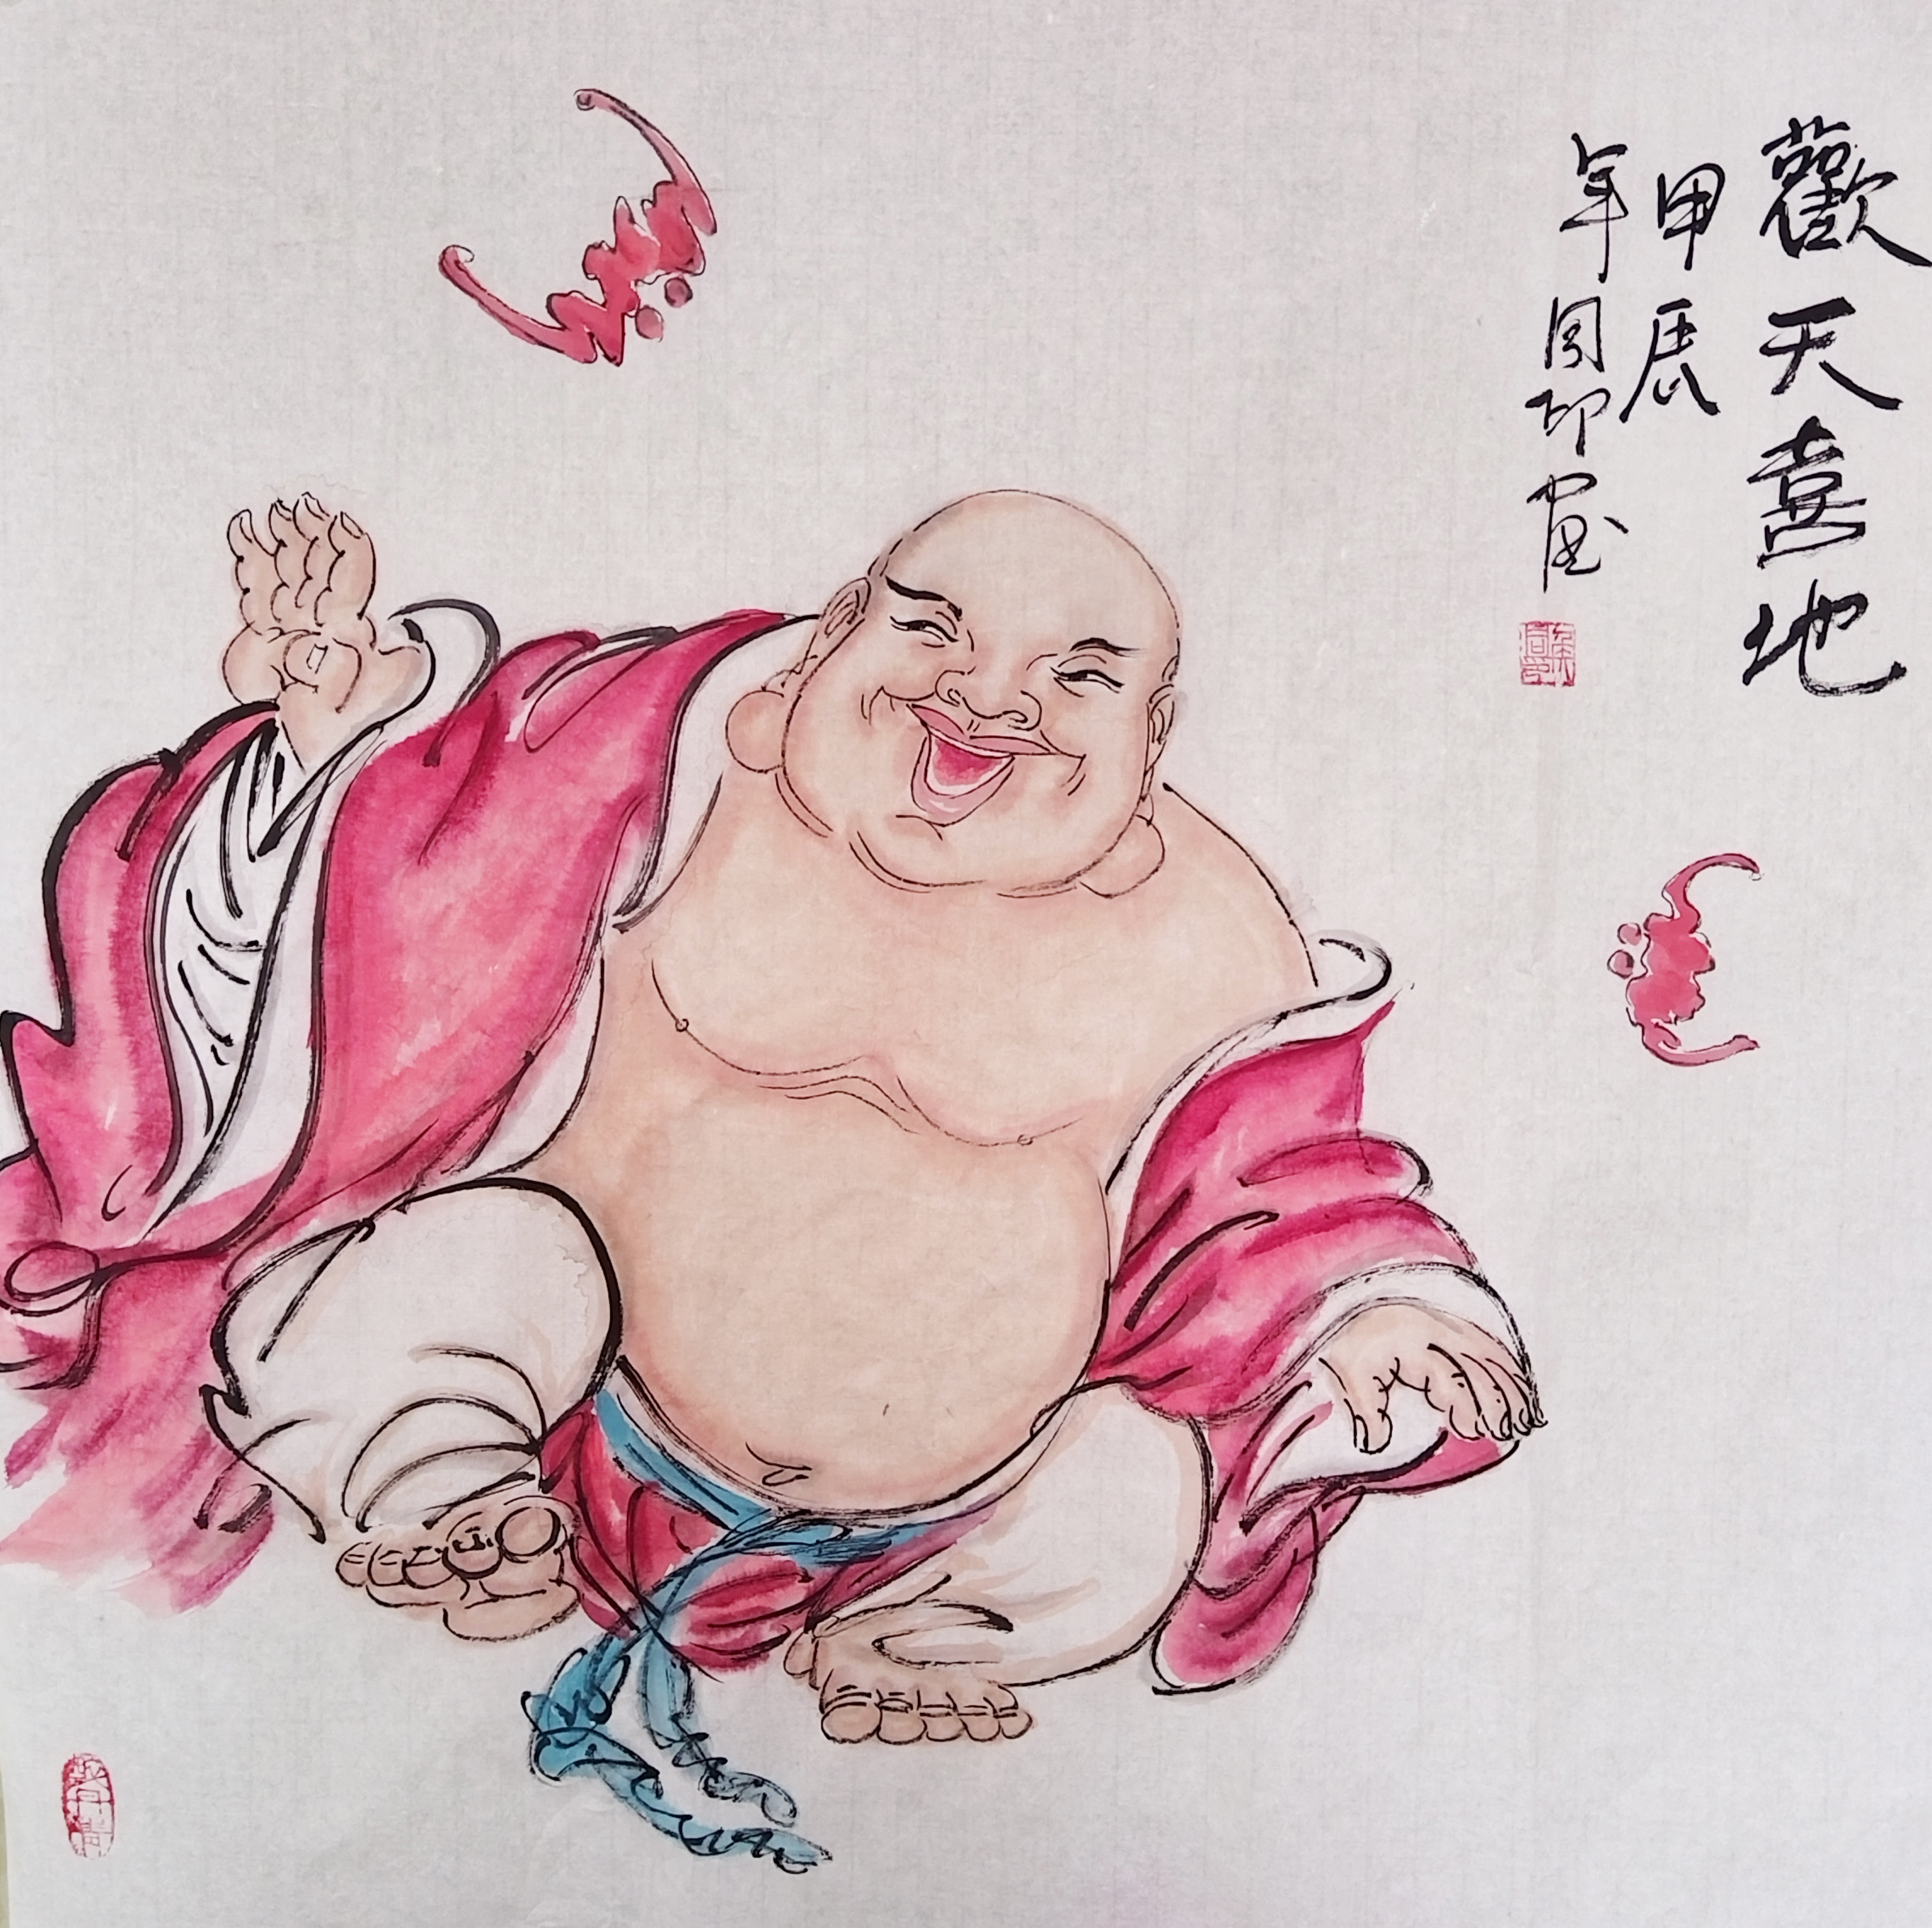 歡天喜地
甲辰
年同印画